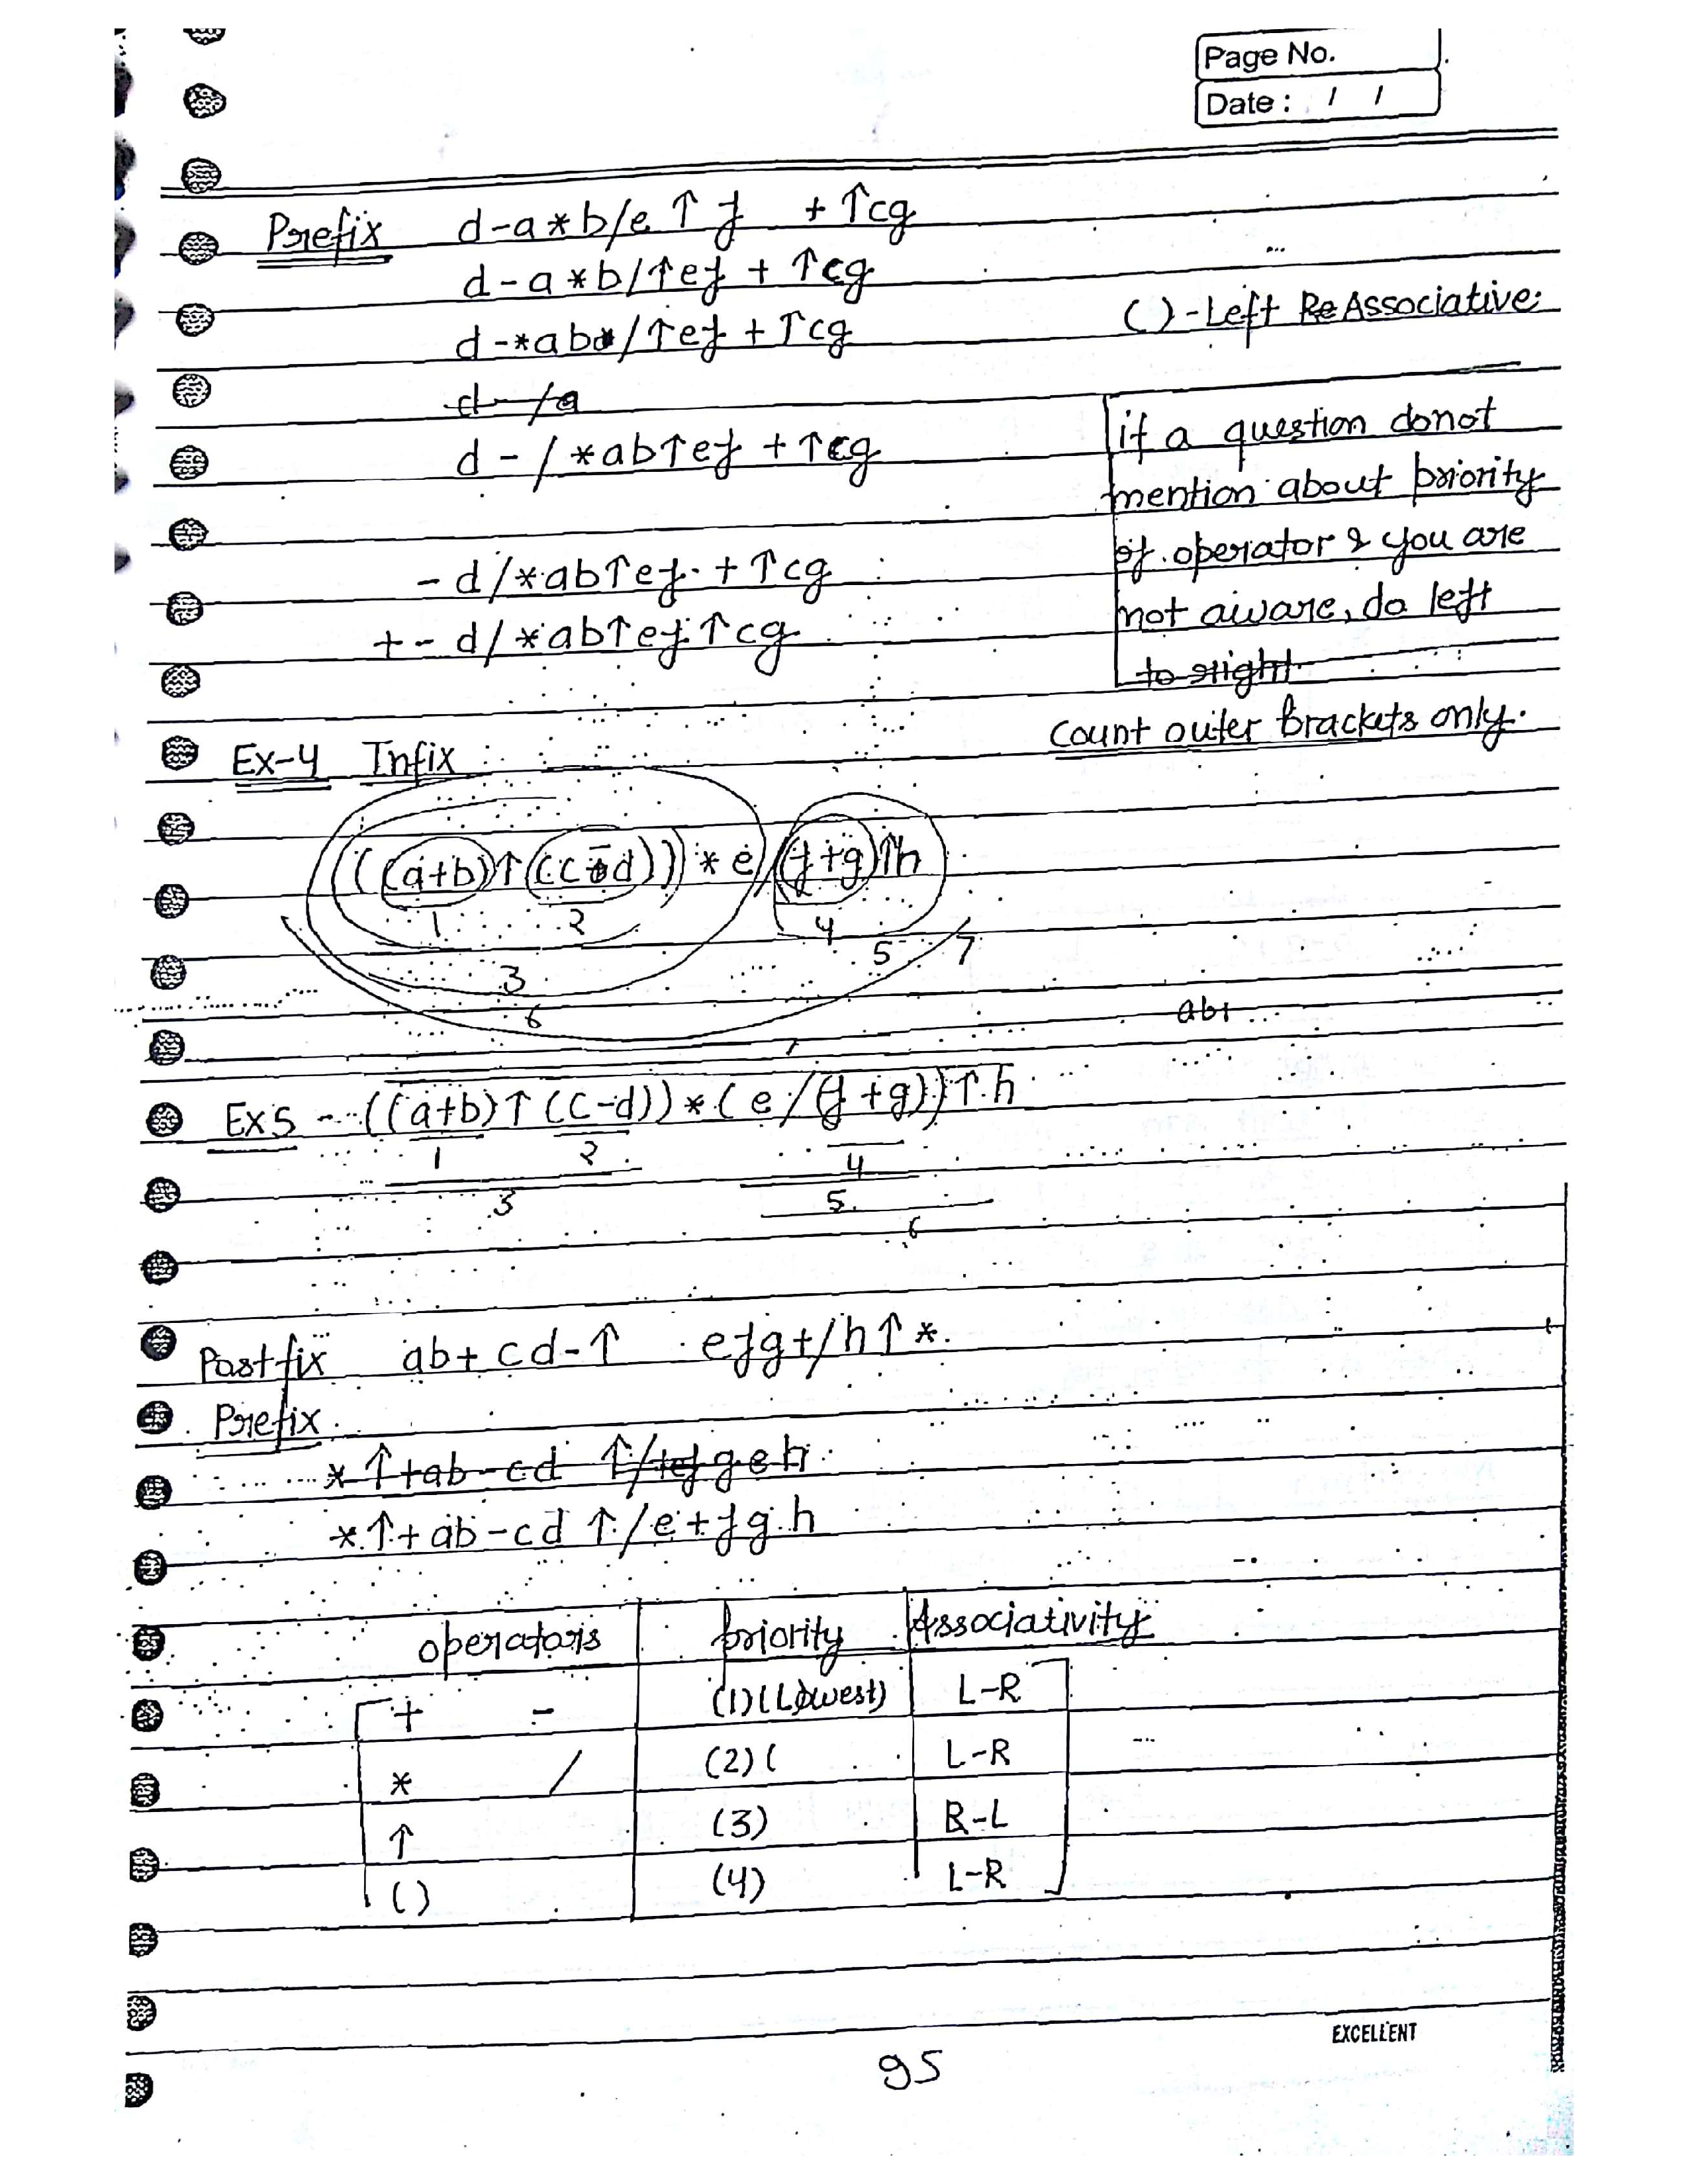 Page No.
Date : / /
Prefix d-a*b/e↑f +↑cg
d-a*b/↑ef + ↑cg
d-*ab/↑ef + ↑cg
() -Left Re Associative:
d-/a
d-/*ab↑ef +↑cg
if a question donot
mention about priority
of operator & you are
not aware, do left
to right
-d/*ab↑ef + ↑cg
+-d/*ab↑ef↑cg
count outer brackets only.
Ex-4 Infix
(((a+b)↑(c-d))*e/(f+g)↑h
1 2 4
5 7
3
6
ab+
7
Ex5 - ((a+b)↑(c-d))*(e/(f+g))↑h
1 2 4
3 5
6
Postfix ab+cd-↑ efg+/h↑*
Prefix
*↑+ab-cd ↑/+efgeh
*↑+ab-cd↑/e+fgh
operators priority Associativity
+ - (1)(Lowest) L-R
* / (2)( L-R
↑ (3) R-L
() (4) L-R
EXCELLENT
95